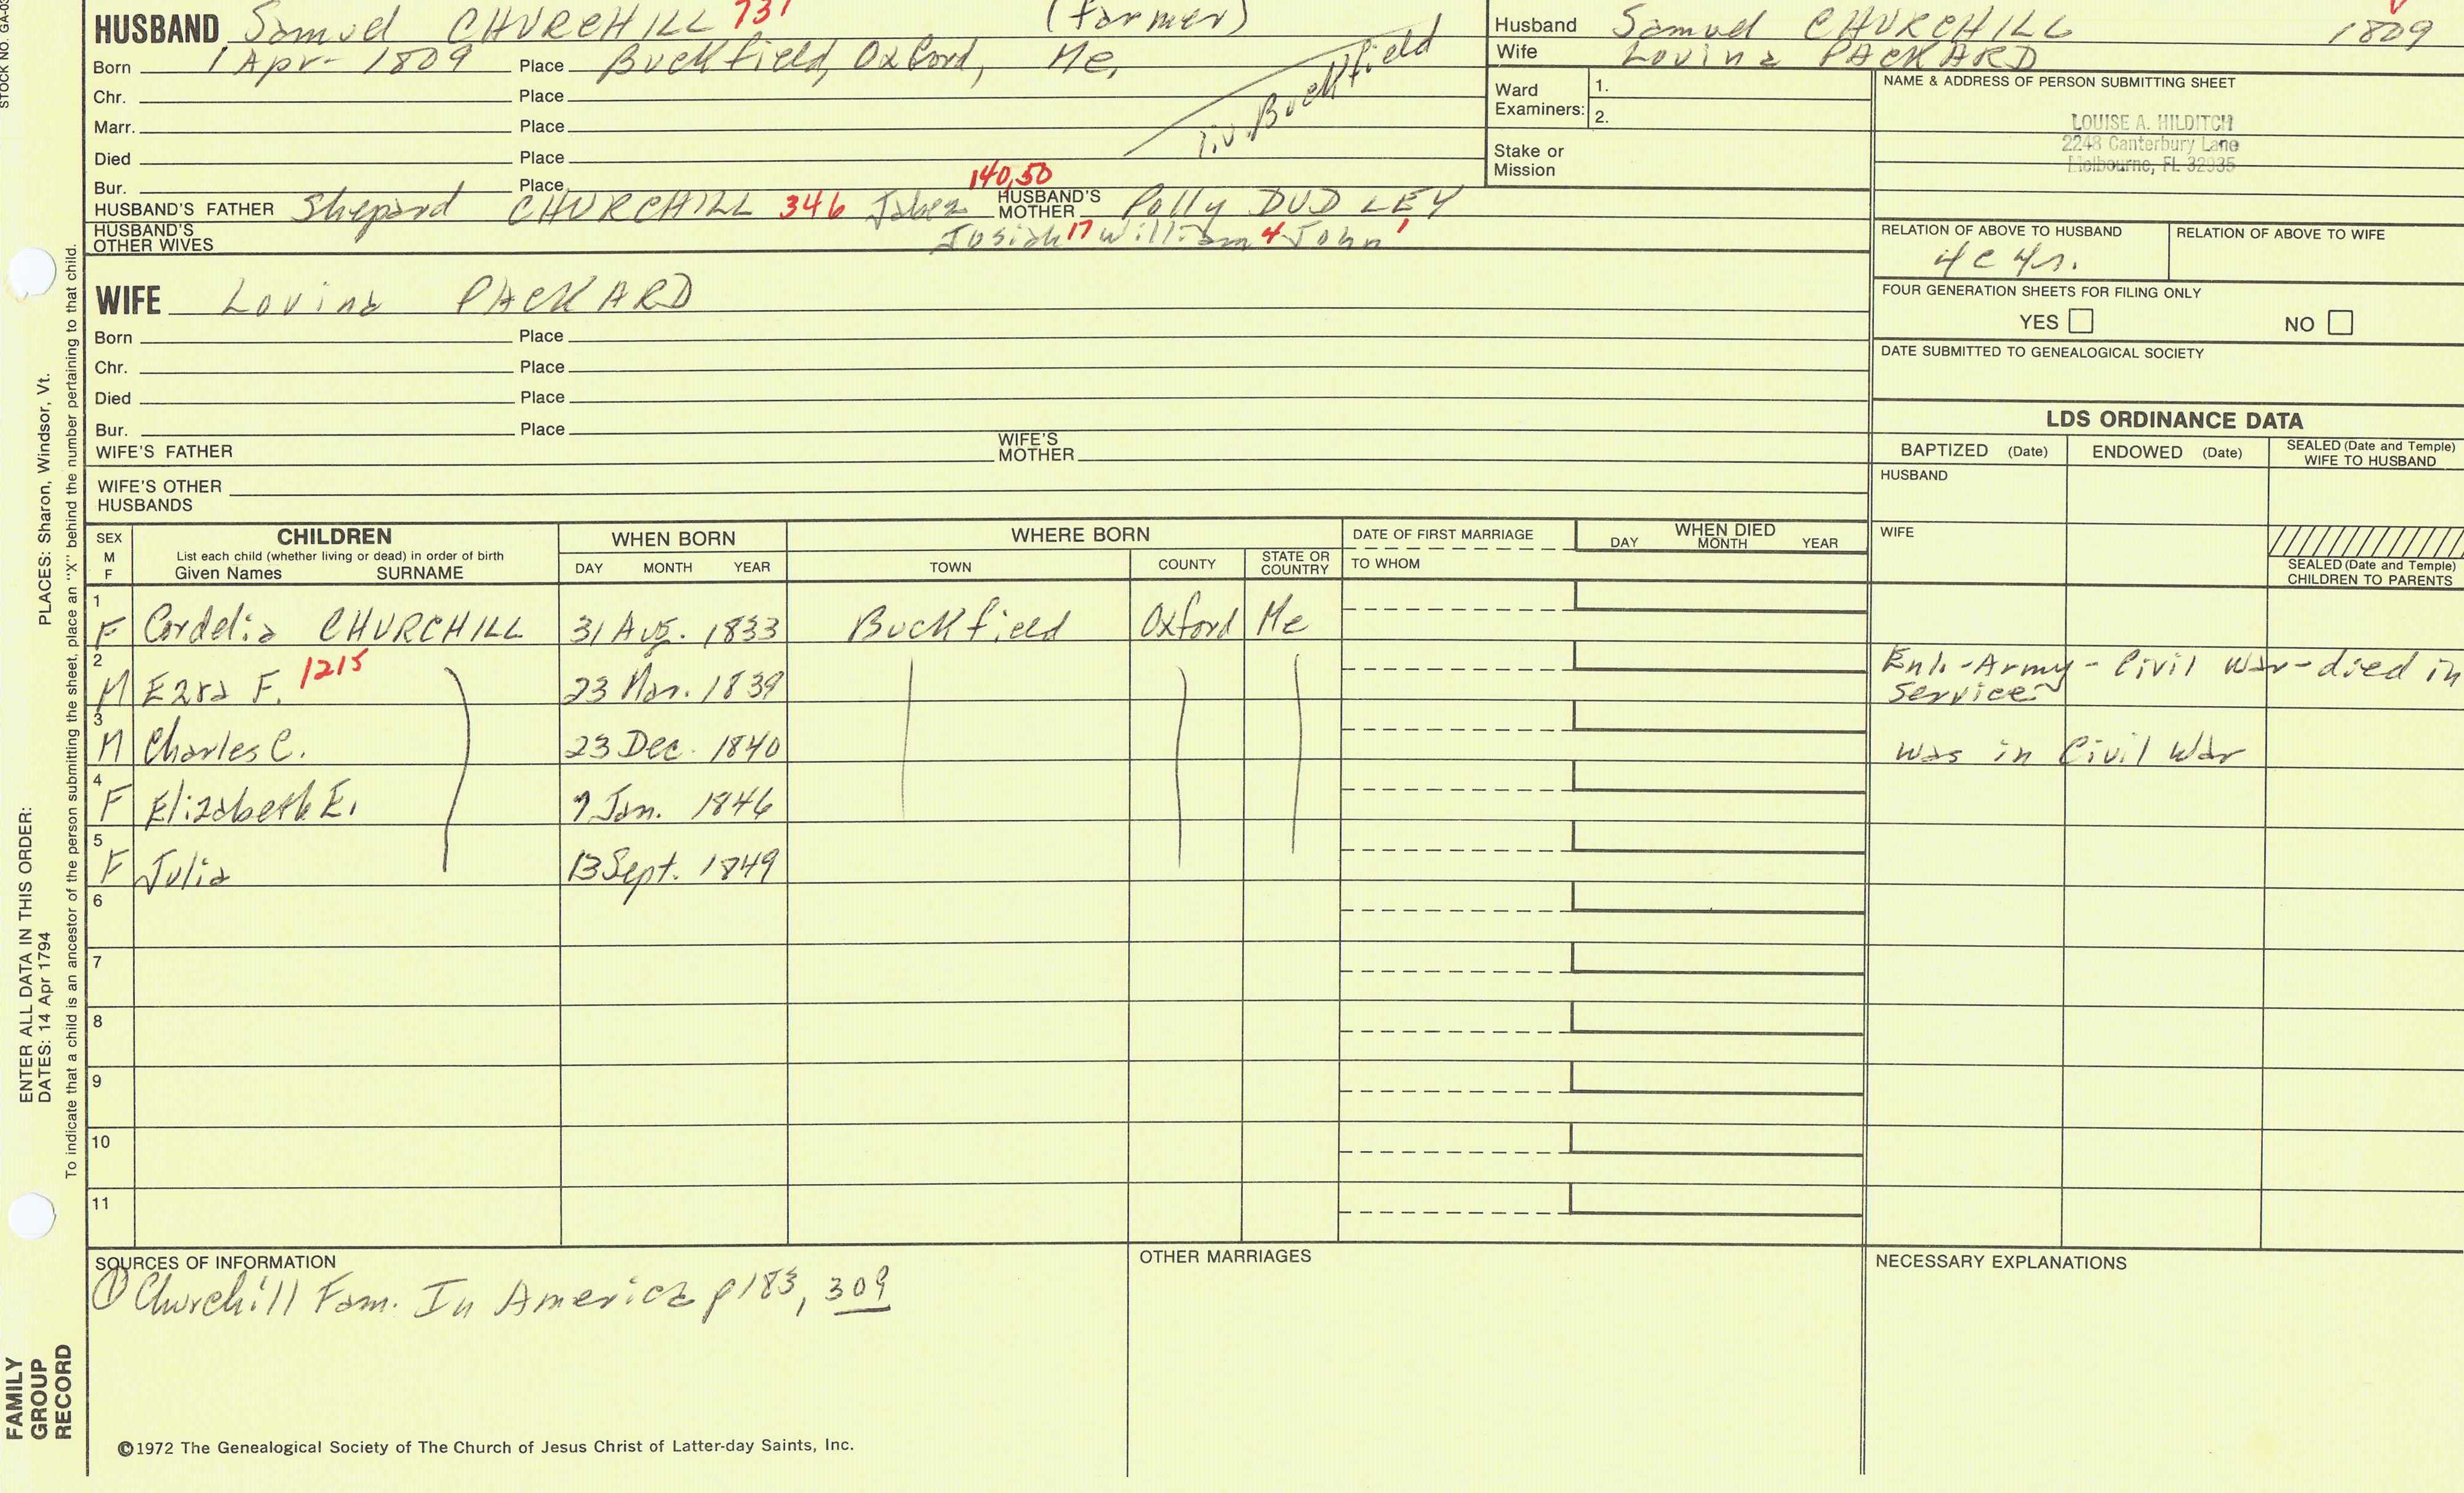 HUSBAND Samuel CHURCHILL 731 (farmer)
Born 1 Apr- 1809 Place Buckfield, Oxford, Me,
liv. Buckfield
Chr. Place
Marr. Place
Died Place
Bur. Place
140,50
HUSBAND'S FATHER Shepard CHURCHILL 346 Jabez HUSBAND'S MOTHER Polly DUDLEY
HUSBAND'S OTHER WIVES Josiah 17 William 4 John 1
WIFE Lovina PACKARD
Born Place
Chr. Place
Died Place
Bur. Place
WIFE'S FATHER WIFE'S MOTHER
WIFE'S OTHER HUSBANDS
Husband Samuel CHURCHILL 1809
Wife Lovina PACKARD
Ward Examiners: 1.
2.
Stake or Mission
NAME & ADDRESS OF PERSON SUBMITTING SHEET
LOUISE A. HILDITCH
2248 Canterbury Lane
Melbourne, FL 32935
RELATION OF ABOVE TO HUSBAND RELATION OF ABOVE TO WIFE
4c4r.
FOUR GENERATION SHEETS FOR FILING ONLY
YES NO
DATE SUBMITTED TO GENEALOGICAL SOCIETY
LDS ORDINANCE DATA
BAPTIZED (Date) ENDOWED (Date) SEALED (Date and Temple) WIFE TO HUSBAND
HUSBAND
WIFE
SEALED (Date and Temple) CHILDREN TO PARENTS
SEX M F
CHILDREN
List each child (whether living or dead) in order of birth
Given Names SURNAME
WHEN BORN
DAY MONTH YEAR
WHERE BORN
TOWN COUNTY STATE OR COUNTRY
DATE OF FIRST MARRIAGE
TO WHOM
WHEN DIED
DAY MONTH YEAR
1 F Cordelia CHURCHILL 31 Aug. 1833 Buckfield Oxford Me
2 M Ezra F. 1215 23 Mar. 1839 Enl.-Army-Civil War-died in service
3 M Charles C. 23 Dec. 1840 was in Civil War
4 F Elizabeth E. 7 Jan. 1846
5 F Julia 13 Sept. 1849
6
7
8
9
10
11
SOURCES OF INFORMATION
① Churchill Fam. In America p183, 309
OTHER MARRIAGES
NECESSARY EXPLANATIONS
©1972 The Genealogical Society of The Church of Jesus Christ of Latter-day Saints, Inc.
STOCK NO.
PLACES: Sharon, Windsor, Vt.
To indicate that a child is an ancestor of the person submitting the sheet, place an "X" behind the number pertaining to that child.
ENTER ALL DATA IN THIS ORDER:
DATES: 14 Apr 1794
FAMILY
GROUP
RECORD